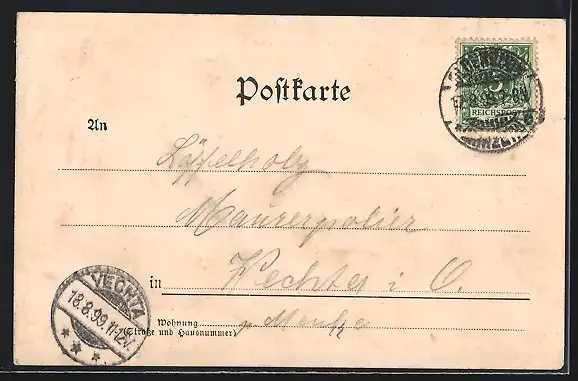 Postkarte
REICHSPOST
An
Löffelholz
Maurerpolier
in Vechta i O.
Wohnung
(Straße und Hausnummer)
VECHTA
18.8.99.11-12V.